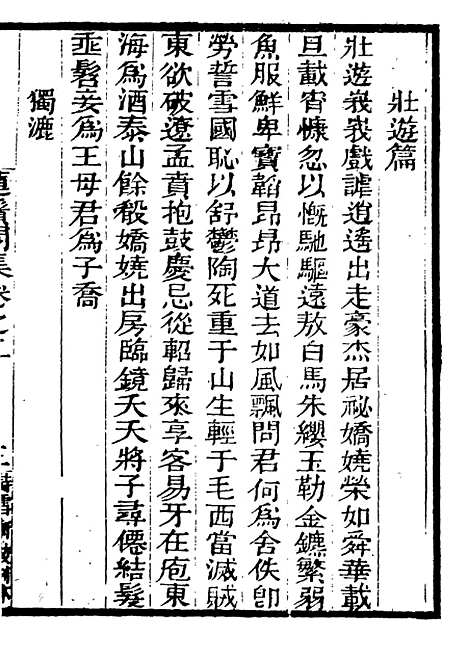 壯遊篇
壯遊峩峩戲謔逍遙出走豪杰居祕嬌嬈榮如舜華載
旦載宵慷忽以慨馳驅遠敖白馬朱纓玉勒金鑣繁弱
魚服鮮卑寶韜昂昂大道去如風飄問君何爲舍佚卽
勞誓雪國恥以舒鬱陶死重于山生輕于毛西當滅賊
東欲破遼孟賁抱鼓慶忌從軺歸來享客易牙在庖東
海爲酒泰山餘殽嬌嬈出房臨鏡夭夭將子尋僊結髮
垂髫妾爲王母君爲子喬
獨漉
集卷之二